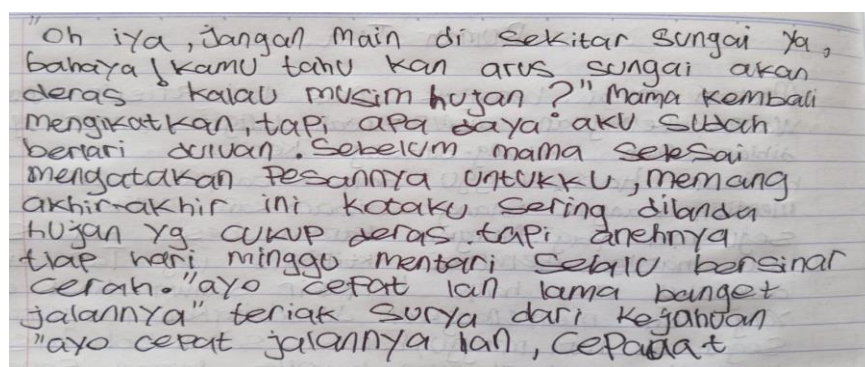 "Oh iya, Jangan Main di sekitar sungai ya,
bahaya! Kamu tahu kan arus sungai akan
deras kalau musim hujan?" Mama kembali
mengikatkan, tapi apa daya aku sudah
berlari duluan. Sebelum mama selesai
mengatakan Pesannya untukku, memang
akhir-akhir ini kotaku sering dilanda
hujan yg cukup deras. tapi anehnya
tiap hari minggu mentari selalu bersinar
cerah. "ayo cepat lan lama banget
jalannya" teriak Surya dari kejahuan
"ayo cepat jalannya lan, cepaaat